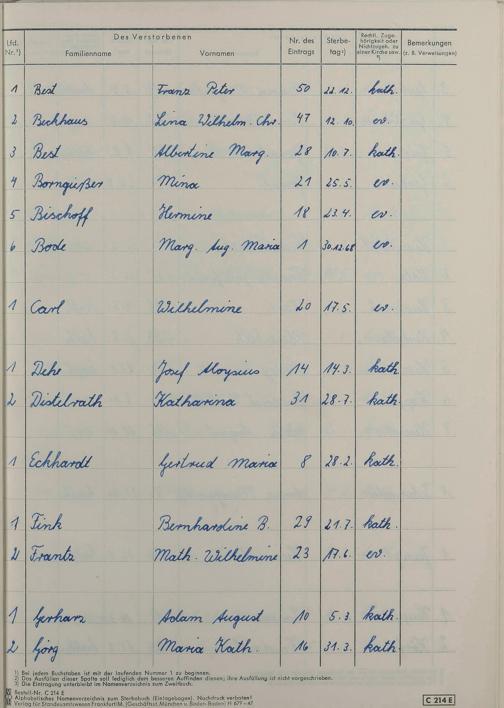 Lfd. Nr.¹) Des Verstorbenen Nr. des Eintrags Sterbetag²) Rechtl. Zugehörigkeit oder Nichtzugeh. zu einer Kirche usw. ³) Bemerkungen (z. B. Verweisungen)
Familienname Vornamen
1 Best Franz Peter 50 22.12. kath.
2 Beckhaus Lina Wilhelm. Chr. 47 12.10. ev.
3 Best Albertine Marg. 28 10.7. kath.
4 Borngießer Mina 21 25.5. ev.
5 Bischoff Hermine 18 23.4. ev.
6 Bode Marg. Aug. Maria 1 30.12.68 ev.
1 Carl Wilhelmine 20 17.5. ev.
1 Dehe Josef Aloysius 14 14.3. kath.
2 Distelrath Katharina 31 28.7. kath.
1 Eckhardt Gertrud Maria 8 28.2. kath.
1 Fink Bernhardine B. 29 21.7. kath.
2 Frantz Math. Wilhelmine 23 17.6. ev.
1 Gerharz Adam August 10 5.3. kath.
2 Görg Maria Kath. 16 31.3. kath.
1) Bei jedem Buchstaben ist mit der laufenden Nummer 1 zu beginnen.
2) Das Ausfüllen dieser Spalte soll lediglich dem besseren Auffinden dienen; ihre Ausfüllung ist nicht vorgeschrieben.
3) Die Eintragung unterbleibt im Namenverzeichnis zum Zweitbuch.
Bestell-Nr. C 214 E
Alphabetisches Namenverzeichnis zum Sterbebuch (Einlagebogen). Nachdruck verboten!
Verlag für Standesamtswesen Frankfurt/M. (Geschäftsst. München u. Baden-Baden) H 677 - 67
C 214 E